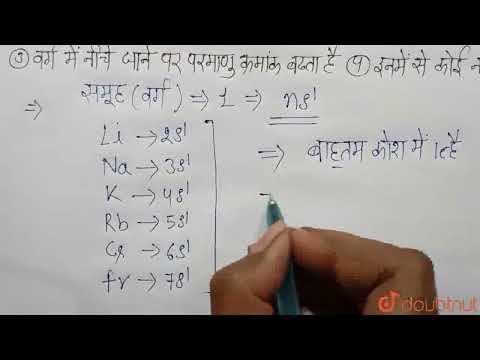 ③ वर्ग में नीचे जाने पर परमाणु क्रमांक बढता है ④ इनमें से कोई न
⇒ समूह (वर्ग) ⇒ 1 ⇒ ns¹
Li → 2s¹
Na → 3s¹
K → 4s¹
Rb → 5s¹
Cs → 6s¹
fr → 7s¹
⇒ बाह्तम कोश में 1e है
doubtnut